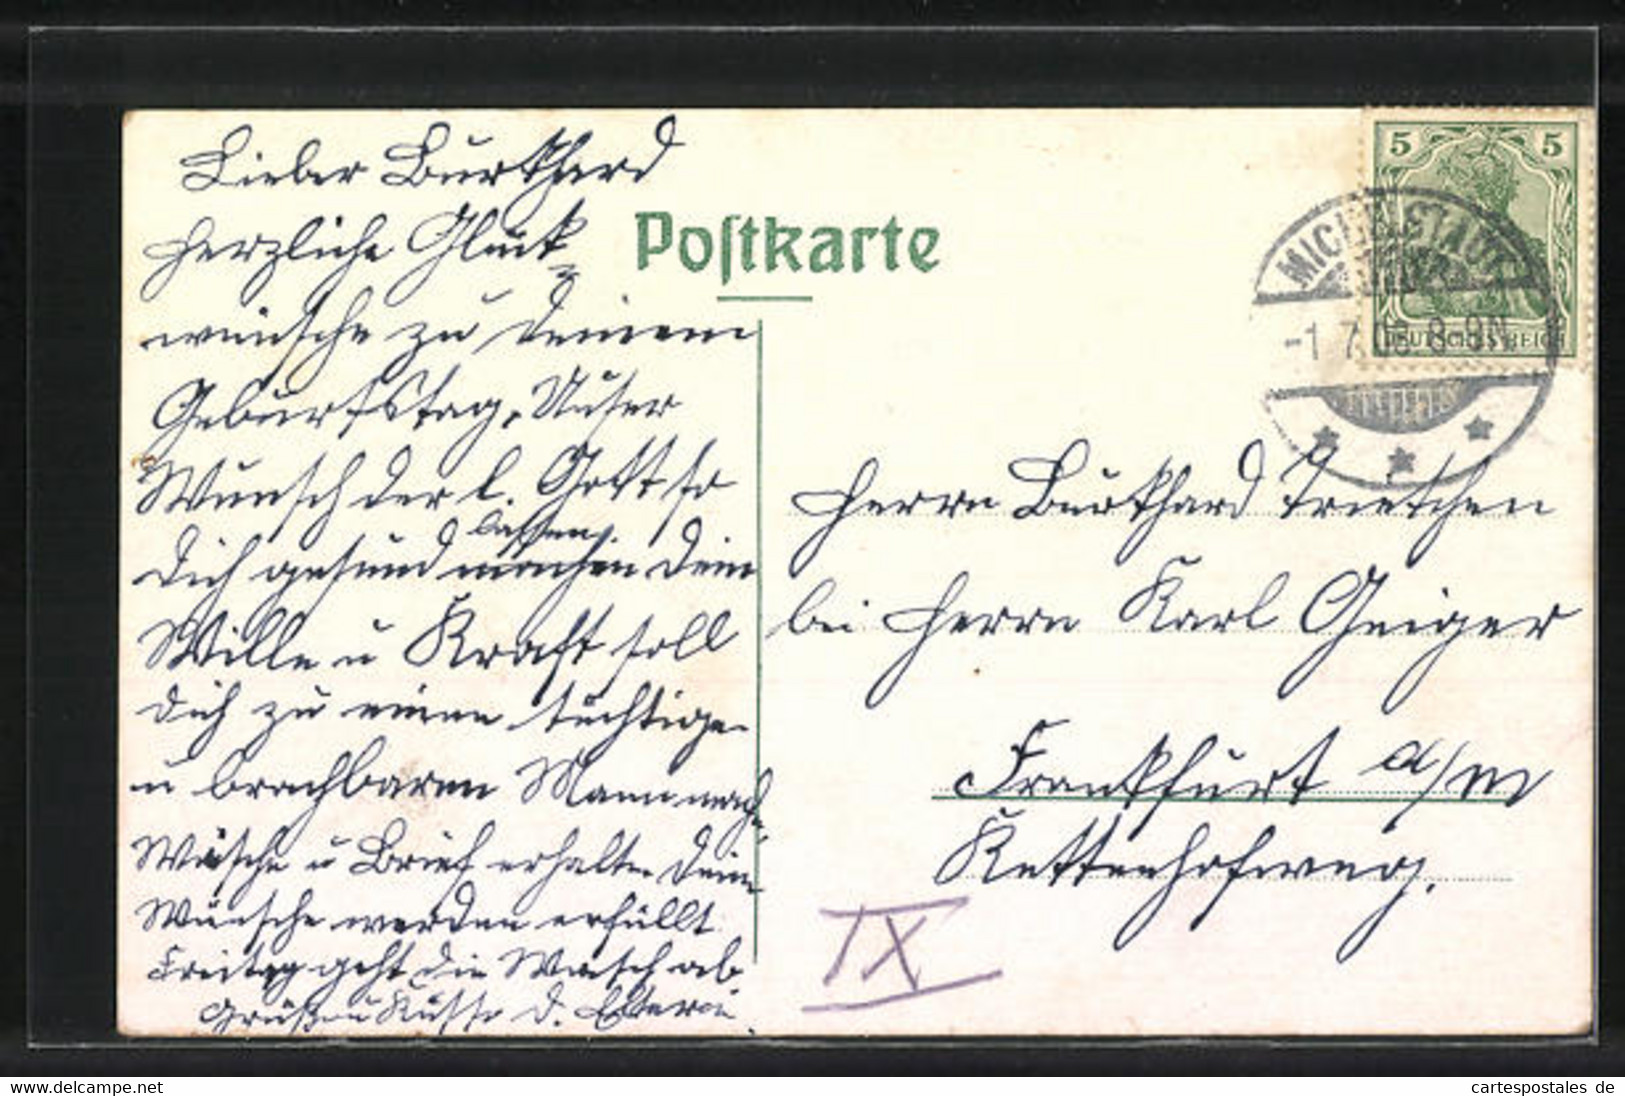 Lieber Burkhard
Herzliche Glück-
wünsche zu Deinem
Geburtstag. Unser
Wunsch der l. Gott so
lassen.
Dich gesund machen Dein
Wille u Kraft soll
Dich zu einen tüchtige
u brachbaren Mann mache.
Wäsche u Brief erhalte Deine
Wünsche werden erfüllt
Freitag geht die Wäsch ab
Grüße u Küsse d. Eltern
Postkarte
5 5
DEUTSCHES REICH
MICHELSTADT
-1 7 08 8-9N
Herrn Burkhard
bei Herrn Karl Geiger
Frankfurt a/M
Kettenhofweg.
IX
cartespostales de